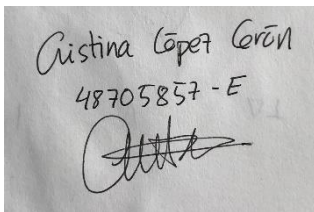 Cristina López Cerón
48705857-E